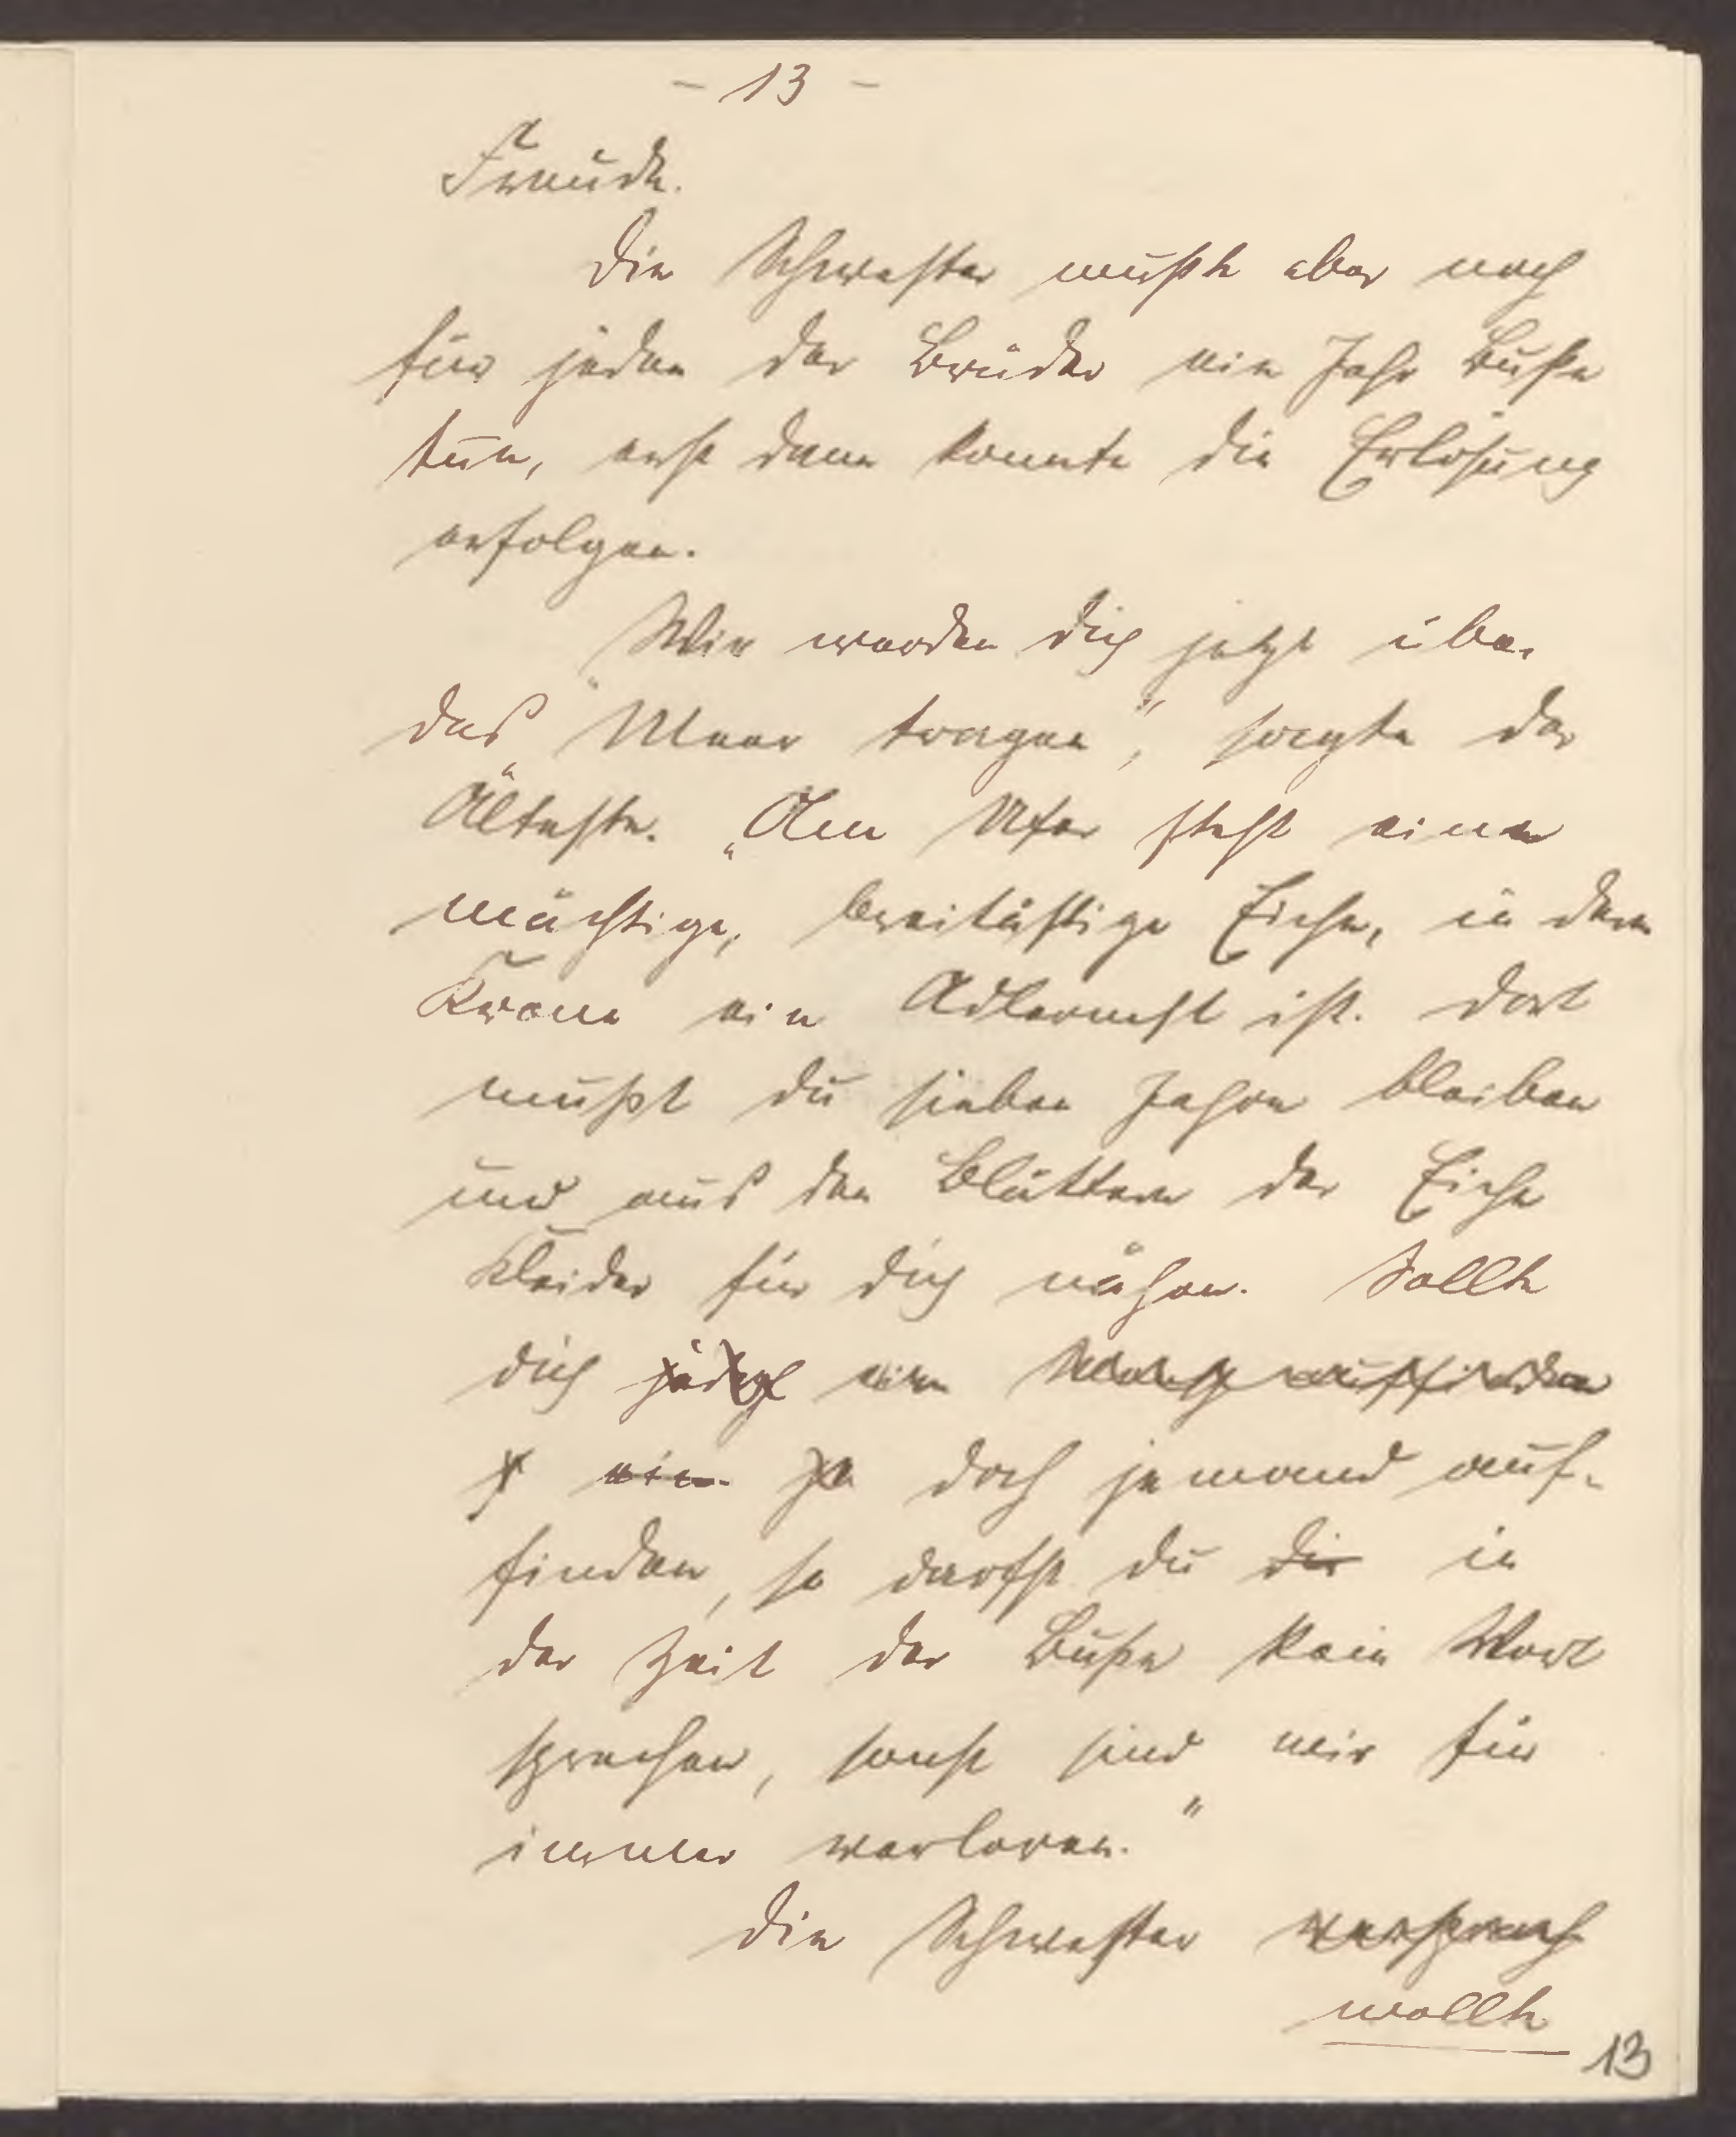 - 13 -
Freude.
Die Schwester mußte aber noch
für jeden der Brüder ein Jahr Buße
tun, erst dann konnte die Erlösung
erfolgen.
„Wir werden dich jetzt über
das Meer tragen", sagte der
Älteste. „Am Ufer steht eine
mächtige, breitästige Eiche, in deren
Krone ein Adlernest ist. Dort
mußt du sieben Jahre bleiben
und aus den Blättern der Eiche
Kleider für dich nähen. Sollte
dich ein auffinden
ein ja doch jemand auf-
finden, so darfst du dir in
der Zeit der Buße kein Wort
sprechen, sonst sind wir für
immer verloren."
Die Schwester versprach
wollte
13